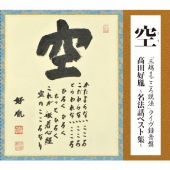 空
「三越まごころ説法」ライヴ録音盤
高田好胤
~名法話ベスト集~
空
かたよらないこころ
こだわらないこころ
とらわれないこころ
ひろくひろく
もっとひろく
これが般若心経
空のこころなり
好胤